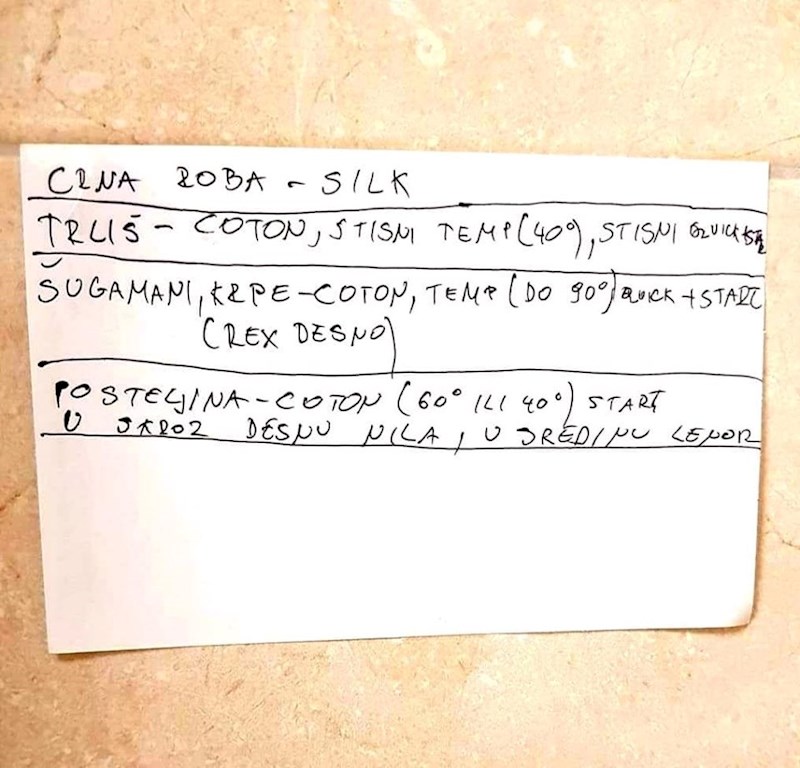 CRNA ROBA - SILK
TRLIŠ - COTON, STISNI TEMP (40°), STISNI QUICK+STR
ŠUGAMANI, KRPE-COTON, TEMP (DO 90°) QUICK + START
(REX DESNO)
POSTELJINA-COTON (60° ILI 40°) START
U SKROZ DESNU NILA, U SREDINU LENOR